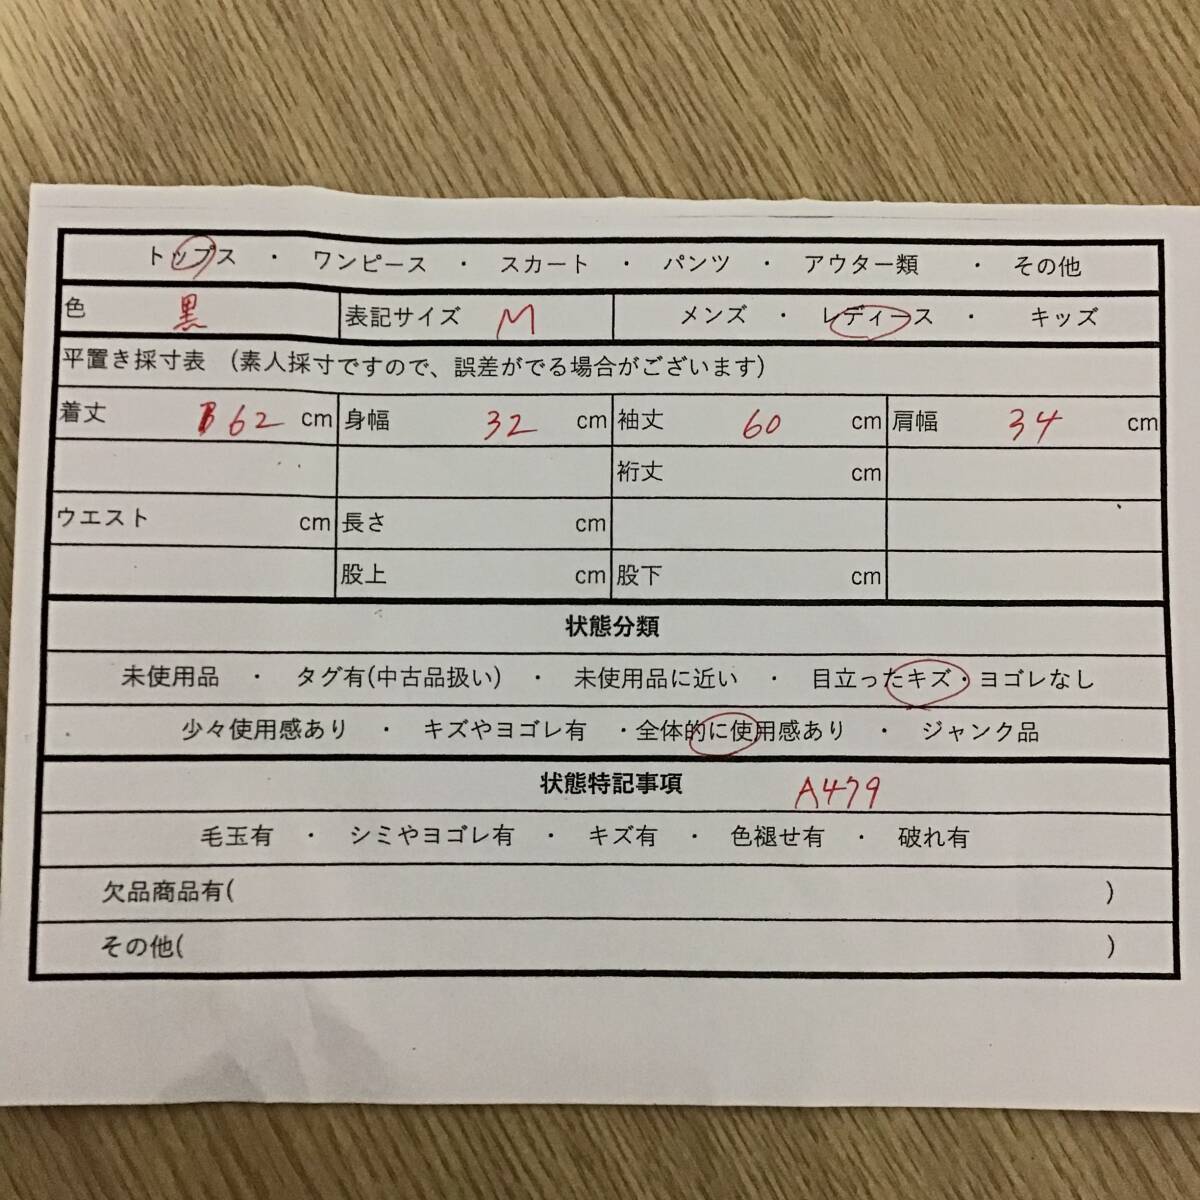 トップス ・ ワンピース ・ スカート ・ パンツ ・ アウター類 ・ その他
色 黒 表記サイズ M メンズ ・ レディース ・ キッズ
平置き採寸表 (素人採寸ですので、誤差がでる場合がございます)
着丈 62 cm 身幅 32 cm 袖丈 60 cm 肩幅 34 cm
裄丈 cm
ウエスト cm 長さ cm
股上 cm 股下 cm
状態分類
未使用品 ・ タグ有(中古品扱い) ・ 未使用品に近い ・ 目立ったキズ・ヨゴレなし
少々使用感あり ・ キズやヨゴレ有 ・全体的に使用感あり ・ ジャンク品
状態特記事項 A479
毛玉有 ・ シミやヨゴレ有 ・ キズ有 ・ 色褪せ有 ・ 破れ有
欠品商品有( )
その他( )